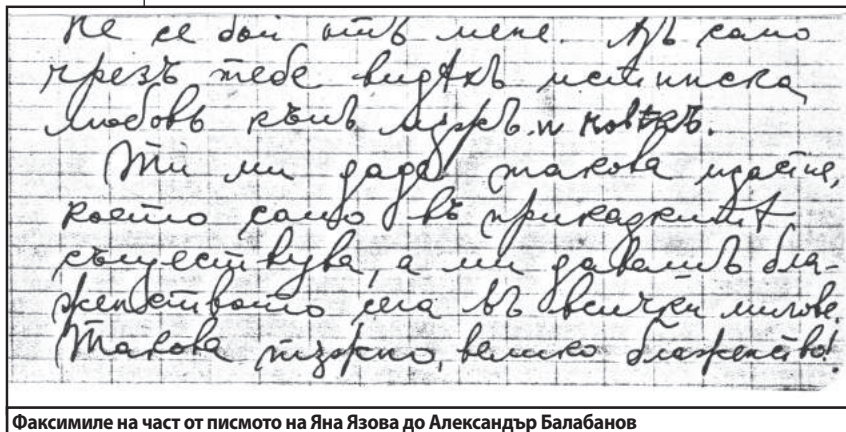 Не се бой отъ мене. Азъ само
чрезъ тебе видѣхъ истинска
любовь къмъ мѫжъ и човѣкъ.
Ти ми даде такова щастие,
което само въ приказкитѣ
съществува, а ми давашъ бла-
женството сега въ всички милове.
Такова тѫжно, велико блаженство!
Факсимиле на част от писмото на Яна Язова до Александър Балабанов